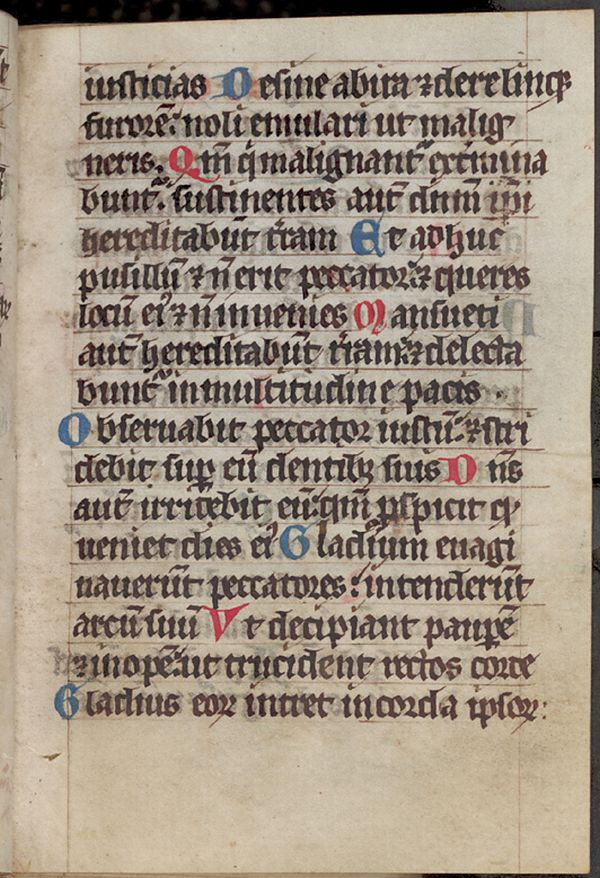 iusticias Desine ab ira ⁊ derelinq̃
furorẽ: noli emulari ut malig
neris. Qm̃ q̃ malignant᷑ ext᷑mina
bunt᷑: sustinentes aut̃ dñm ip̃i
hereditabũt t᷑ram Et adhuc
pusillũ ⁊ ñ erit peccator: ⁊ queres
locũ eiꝰ ⁊ ñ inuenies Mansueti
aut̃ hereditabũt t᷑ram: ⁊ delecta
bunt᷑ in multitudine pacis .
Obseruabit peccator iustũ: ⁊ stri
debit sup̱ eũ dentibꝫ suis Dñs
aut̃ irridebit eũ: qm̃ ꝓspicit qꝫ
ueniet dies eiꝰ Gladium euagi
nauerũt peccatores: intenderũt
arcũ suũ Ut decipiant paup̱ẽ
⁊ inopẽ: ut trucident rectos corde
Gladius eoꝝ intret in corda ipsoꝝ: